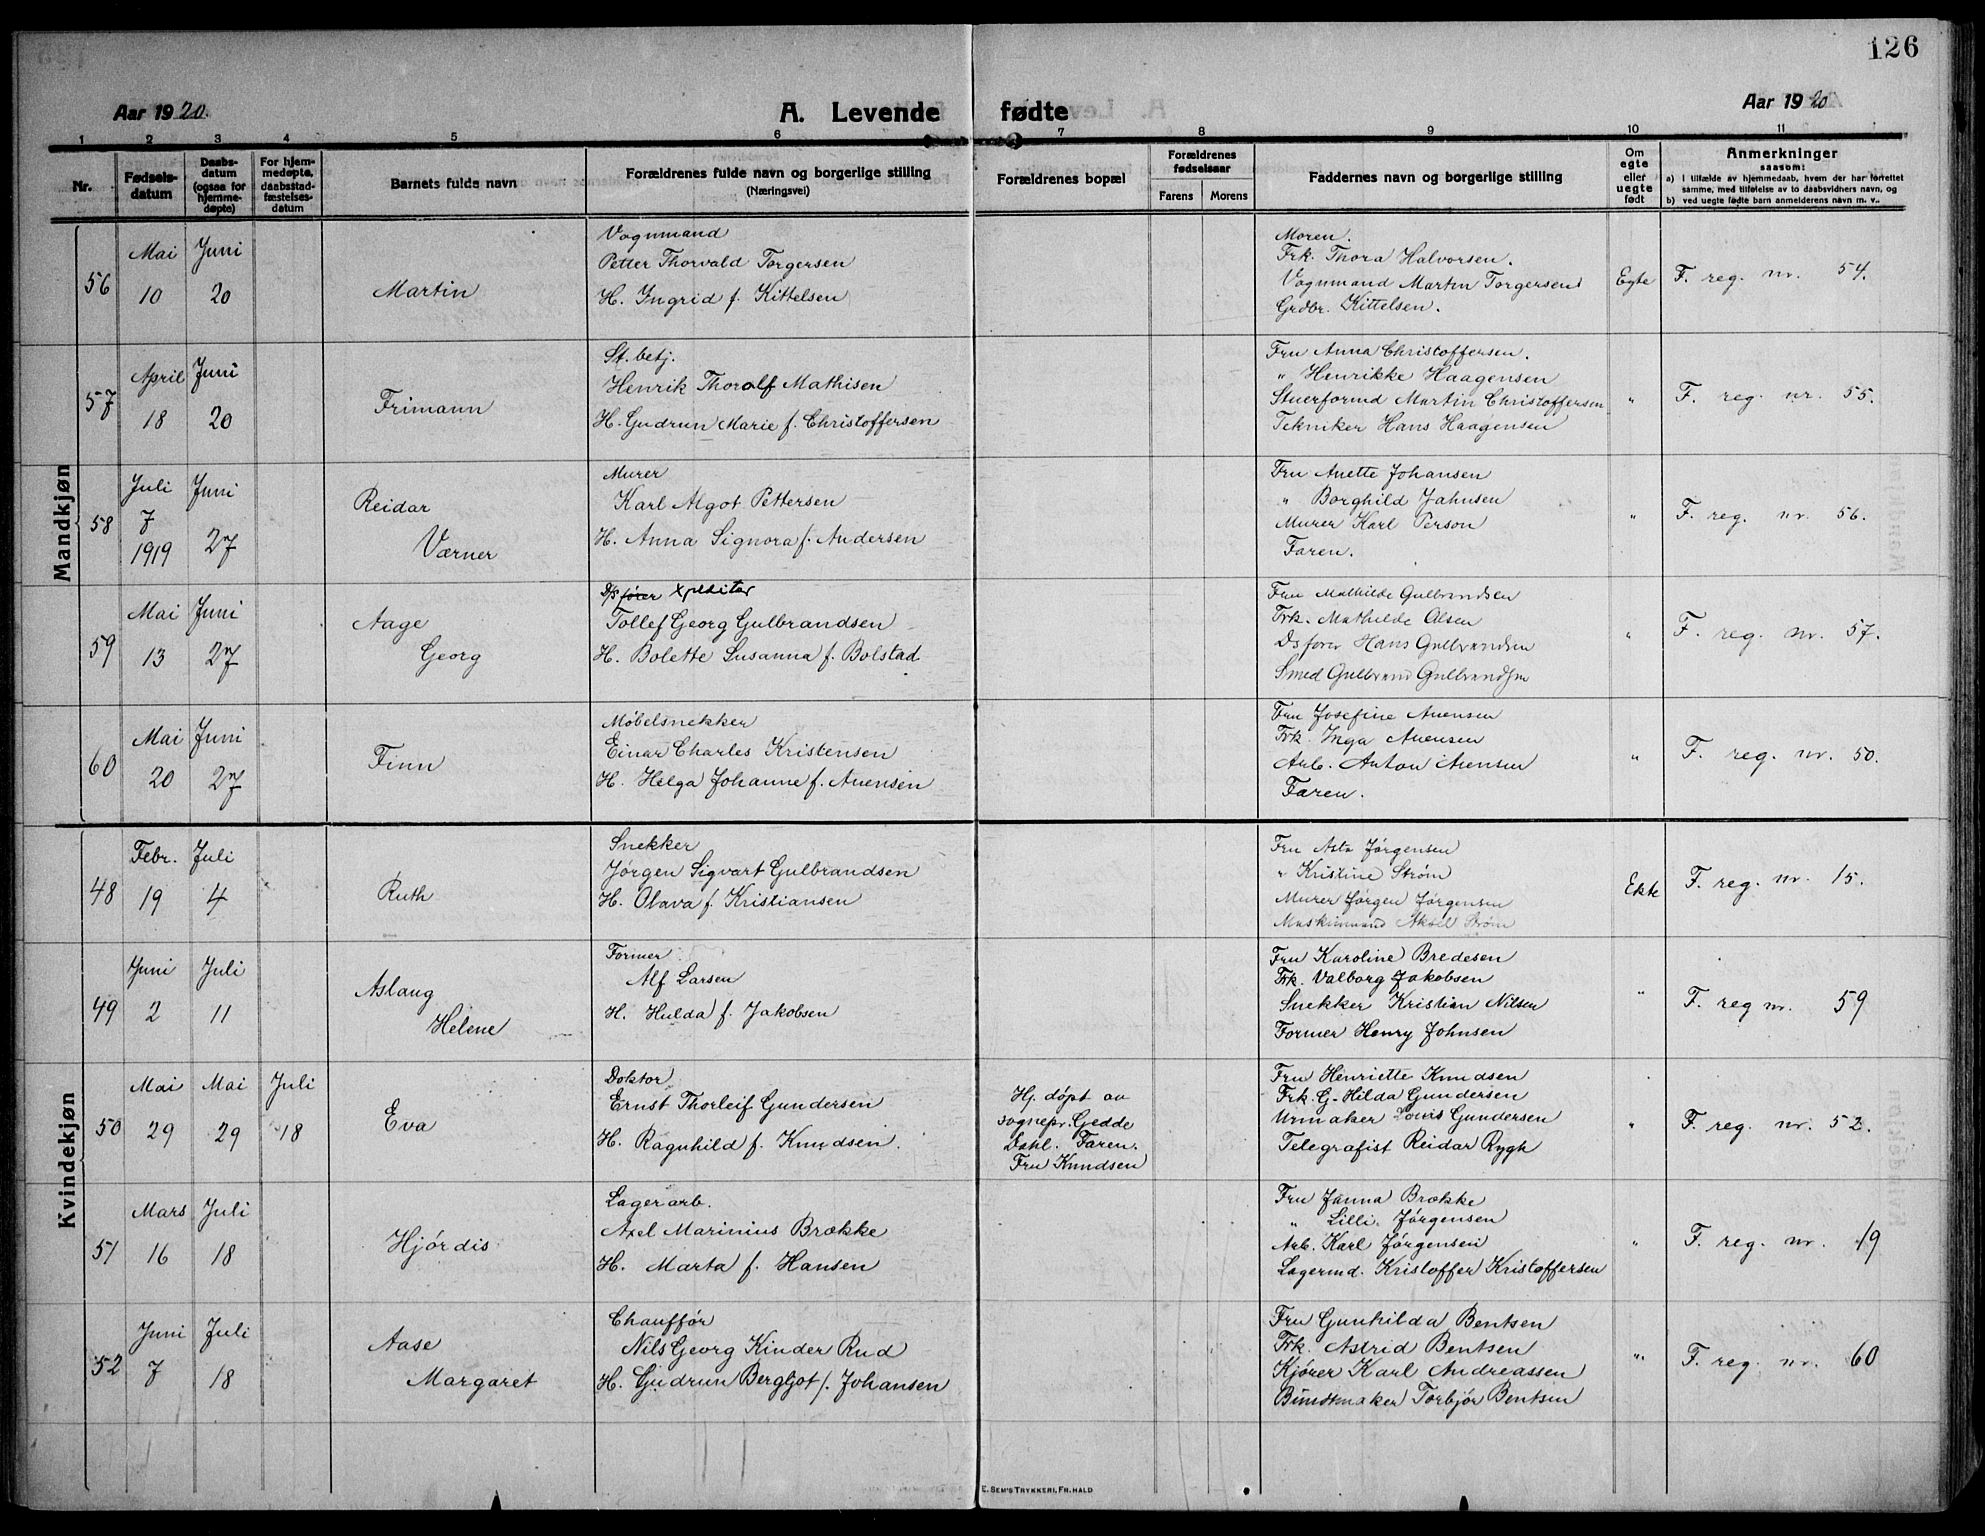 126
Aar 1920.
A. Levende fødte
Aar 1920
1 2 3 4 5 6 7 8 9 10 11
Nr.
Fødsels-
datum
Daabs-
datum
(ogsaa for
hjemme-
døpte)
For hjem-
medøpte,
daabsstad-
fæstelses-
datum
Barnets fulde navn
Forældrenes fulde navn og borgerlige stilling
(Næringsvei)
Forældrenes bopæl
Forældrenes
fødselsaar
Farens Morens
Faddernes navn og borgerlige stilling
Om
egte
eller
uegte
født
Anmerkninger
saasom:
a) I tilfælde av hjemmedaab, hvem der har forrettet
samme, med tilføielse av to daabsvidners navn, og
b) ved uegte fødte barn anmelderens navn m. v..
Mandkjøn
56
Mai
10
Juni
20
Martin
Vognmand
Petter Thorvald Torgersen
H. Ingrid f. Kittelsen
Moren.
Frk. Thora Halvorsen.
Vognmand Martin Torgersen
Grdbr. Kittelsen.
Egte
F. reg. nr. 54.
57
April
18
Juni
20
Frimann
St. betj.
Henrik Thoralf Mathisen
H. Gudrun Marie f. Christoffersen
Fru Anna Christoffersen.
" Henrikke Haagensen
Stuerformd Martin Christoffersen
Tekniker Hans Haagensen
"
F. reg. nr. 55.
58
Juli
7
1919
Juni
27
Reidar
Værner
Murer
Karl Algot Pettersen
H. Anna Signora f. Andersen
Fru Anette Johansen
" Borghild Jahnsen
Murer Karl Person
Faren.
"
F. reg. nr. 56.
59
Mai
13
Juni
27
Aage
Georg
D/S fører xpeditør
Tollef Georg Gulbrandsen
H. Bolette Susanna f. Bolstad
Fru Mathilde Gulbrandsen
Frk. Mathilde Olsen
Ds fører Hans Gulbrandsen
Smed Gulbrand Gulbrandsen
"
F. reg. nr. 57.
60
Mai
20
Juni
27
Finn
Møbelsnekker
Einar Charles Kristensen
H. Helga Johanne f. Auensen
Fru Josefine Auensen
Frk. Inga Auensen
Arb. Anton Auensen
Faren.
"
F. reg. nr. 50.
Kvindekjøn
48
Febr.
19
Juli
4
Ruth
Snekker
Jørgen Sigvart Gulbrandsen
H. Olava f. Kristiansen
Fru Asta Jørgensen
" Kristine Strøm
Murer Jørgen Jørgensen
Maskinmand Aksel Strøm
Ekte
F. reg. nr. 15.
49
Juni
2
Juli
11
Aslaug
Helene
Former
Alf Larsen
H. Hulda f. Jakobsen
Fru Karoline Bredesen
Frk. Valborg Jakobsen
Snekker Kristian Nilsen
Former Henry Johnsen
"
F. reg nr. 59
50
Mai
29
Mai
29
Juli
18
Eva
Doktor
Ernst Thorleif Gundersen
H. Ragnhild f. Knudsen.
Hj. døpt av
sognepr. Gedde
Dahl. Faren.
Fru Knudsen
Fru Henriette Knudsen
Frk. G. Hilda Gundersen
Urmaker Louis Gundersen
Telegrafist Reidar Rygh
"
F. reg. nr. 52.
51
Mars
16
Juli
18
Hjørdis
Lagerarb.
Axel Marinius Brække
H. Marta f. Hansen
Fru Janna Brække
" Lilli Jørgensen
Arb. Karl Jørgensen
Lagermd. Kristoffer Kristoffersen
"
F. reg. nr. 19
52
Juni
7
Juli
18
Aase
Margaret
Chauffør
Nils Georg Kinder Rud
H. Gudrun Bergljot f. Johansen
Fru Gunhilda Bentsen
Frk. Astrid Bentsen
Kjører Karl Andreassen
Buntmaker Torbjør Bentsen
"
F. reg. nr. 60
E. SEM'S TRYKKERI, FR. HALD